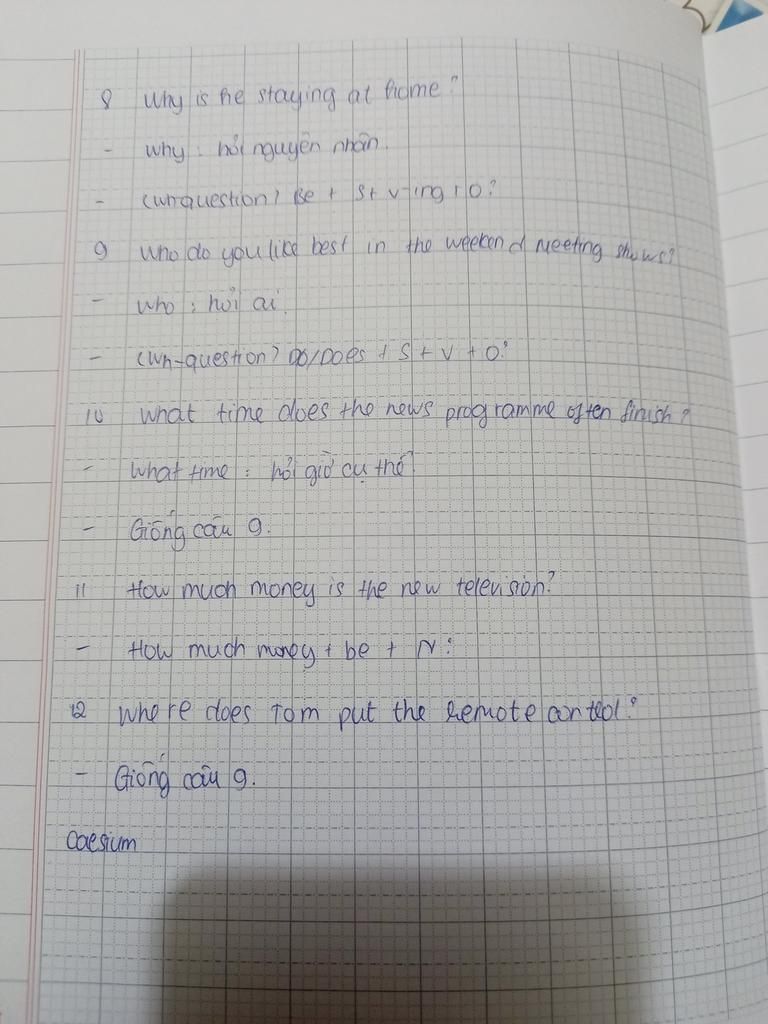 8 Why is he staying at home?
- Why : hỏi nguyên nhân.
- (Wh-question) Be + S + V-ing + O?
9 Who do you like best in the weekend meeting shows?
- Who : hỏi ai.
- (Wh-question) DO/DOES + S + V + O?
10 What time does the news programme often finish?
- What time : hỏi giờ cụ thể
- Giống câu 9.
11 How much money is the new television?
- How much money + be + N?
12 Where does Tom put the remote control?
- Giống câu 9.
Caesium